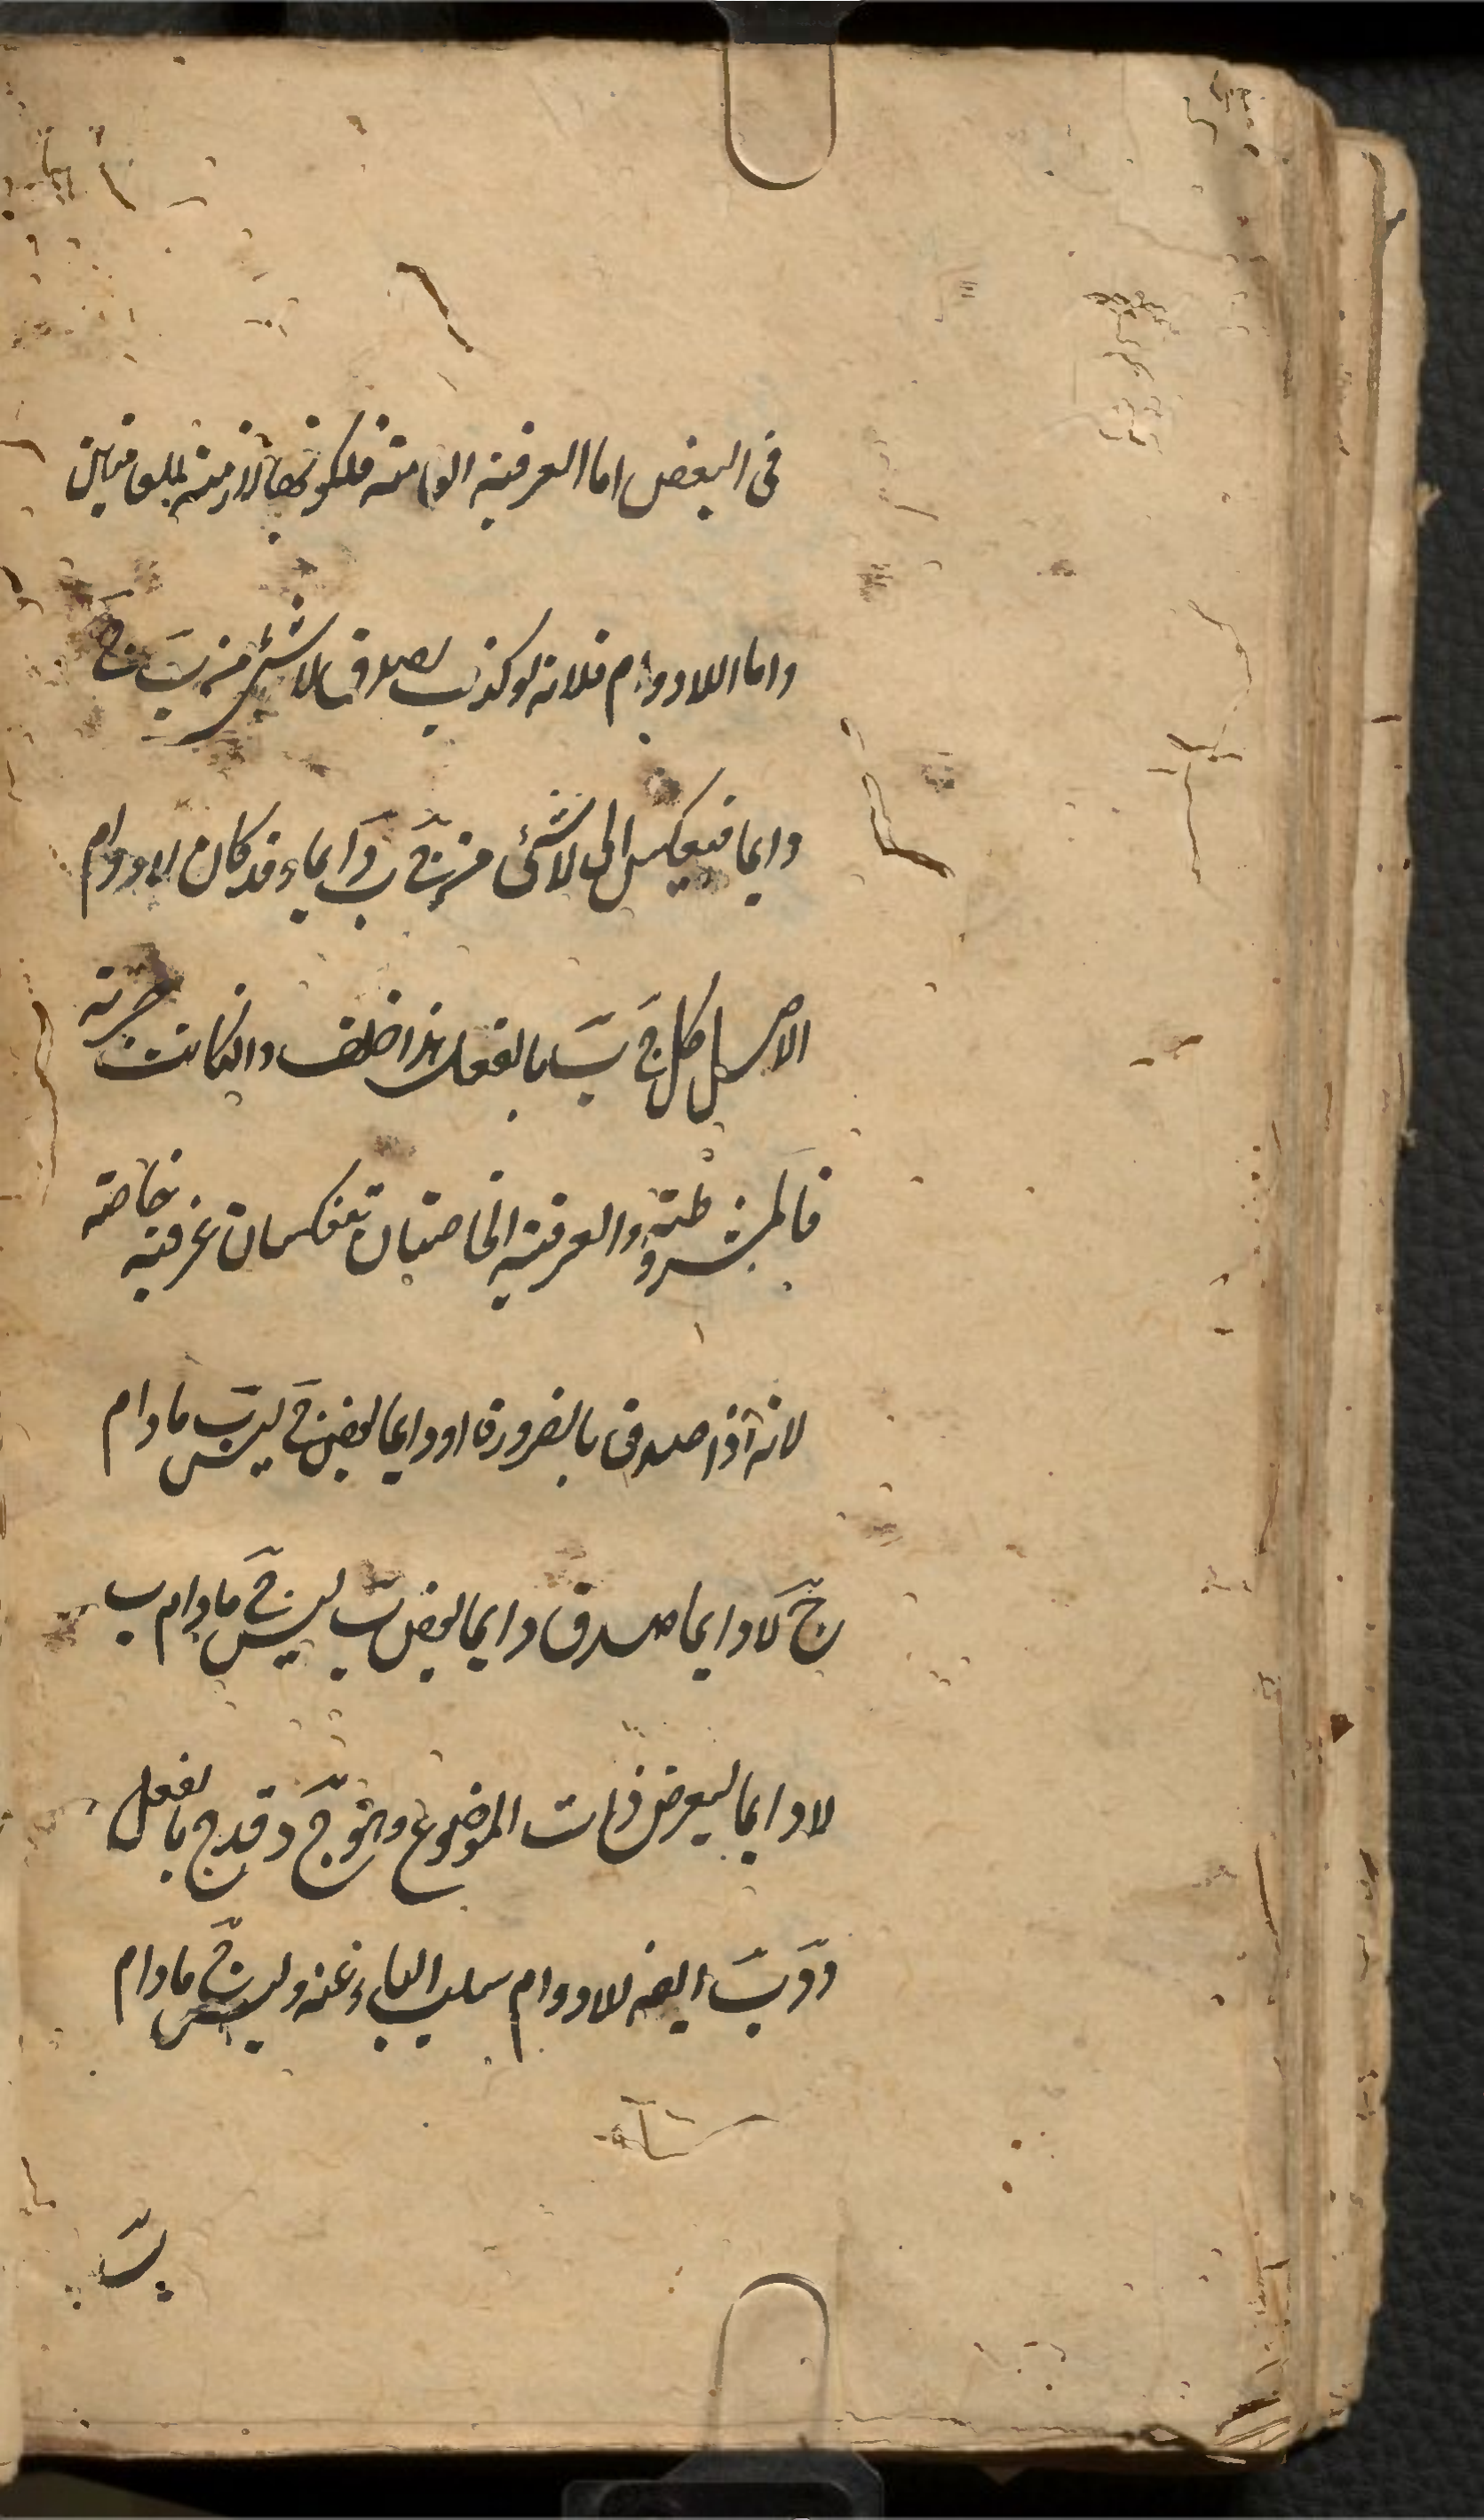 فى البعض اما العرفية العامة فلكونها لازمة للعامتين
واما اللادوام فلانه لو كذب لصدق لا شئ من ب ج
دايما فينعكس الى لا شئ من ج ب دايما وقد كان لا دوام
الاصل كل ج ب بالفعل هذا خلف وان كانت جزئية
فالمشروطة والعرفية الخاصتان تنعكسان عرفية خاصة
لانه اذا صدق بالضرورة او دايما بعض ج ليس ب مادام
ج لا دايما صدق دايما بعض ب ليس ج مادام ب
لا دايما ليفرض ذات الموضوع وهو ج د فد ج بالفعل
ود ب ايضا للادوام سلب الباء عنه وليس ج مادام
ب